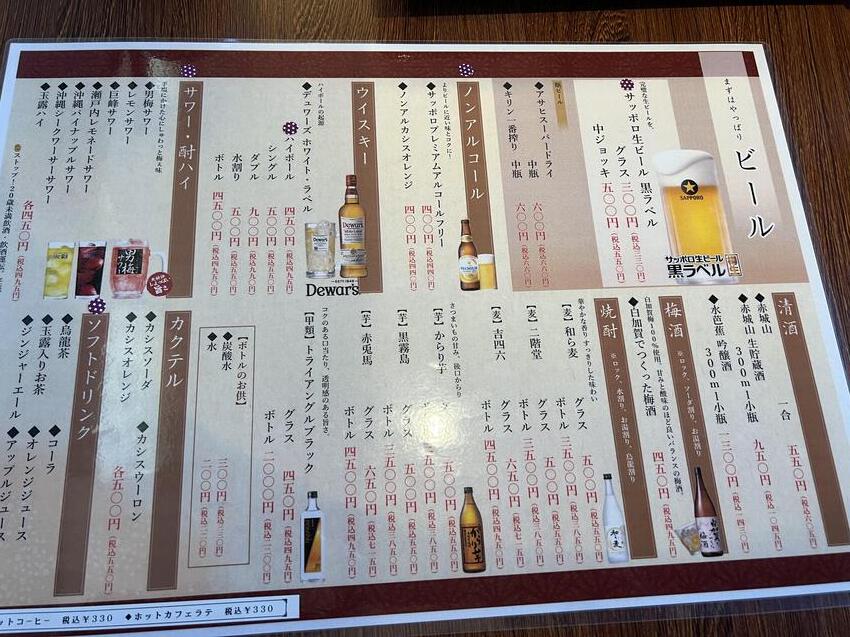 まずはやっぱり
ビール
完璧な生ビールを、
サッポロ生ビール 黒ラベル
グラス 三〇〇円(税込三三〇円)
中ジョッキ 五〇〇円
SAPPORO
サッポロ生ビール
黒ラベル
瓶ビール
◆アサヒスーパードライ
中瓶 六〇〇円
◆キリン 一番搾り 中瓶
六〇〇円
ノンアルコール
よりビールに近い味とコクに!
◆サッポロプレミアムアルコールフリー
四〇〇円
◆ノンアルカシスオレンジ
四〇〇円
ウイスキー
ハイボールの起源
◆デュワーズ ホワイト・ラベル
ハイボール 四五〇円(税込四九五円)
シングル 四五〇円(税込四九五円)
ダブル 九〇〇円(税込九九〇円)
水割り 五〇〇円
ボトル
Dewar's
サワー・酎ハイ
◆男梅サワー
◆レモンサワー
◆巨峰サワー
◆瀬戸内レモネードサワー
◆沖縄パイナップルサワー
◆沖縄シークワーサーサワー
◆玉露ハイ
各四五〇円(税込四九五円)
男梅サワー
清酒
一合 五五〇円
◆赤城山 生貯蔵酒
300ml小瓶 九五〇円(税込一〇四五円)
◆赤城山
300ml小瓶
◆水芭蕉 吟醸酒
300ml小瓶 一三〇〇円(税込一四三〇円)
梅酒
※ロック、ソーダ割り、お湯割り
白加賀梅100%使用。甘みと酸味のほど良いバランスの梅酒。
◆白加賀でつくった梅酒
四五〇円(税込四九五円)
焼酎
※ロック、水割り、お湯割り、烏龍割り
華やかな香りすっきりした味わい
【麦】和ら麦
グラス 五〇〇円
ボトル
【麦】二階堂
グラス 五〇〇円
ボトル
【麦】吉四六
グラス 六五〇円(税込七一五円)
ボトル
さつまいもの甘み、後口からり
【芋】からり芋
五〇〇円
【芋】黒霧島
グラス 五〇〇円
ボトル
【芋】赤兎馬
グラス 六五〇円(税込七一五円)
ボトル
コクのある口当たり、透明感のある旨さ。
【甲類】トライアングルブラック
グラス 四五〇円(税込四九五円)
ボトル 二〇〇〇円(税込二二〇〇円)
【ボトルのお供】
◆炭酸水 三〇〇円(税込三三〇円)
◆水 二〇〇円(税込二二〇円)
カクテル
◆カシスソーダ ◆カシスウーロン
◆カシスオレンジ
各五〇〇円(税込五五〇円)
ソフトドリンク
◆烏龍茶 ◆コーラ
◆玉露入りお茶 ◆オレンジジュース
◆ジンジャーエール ◆アップルジュース
ットコーヒー 税込¥330 ◆ホットカフェラテ 税込¥330